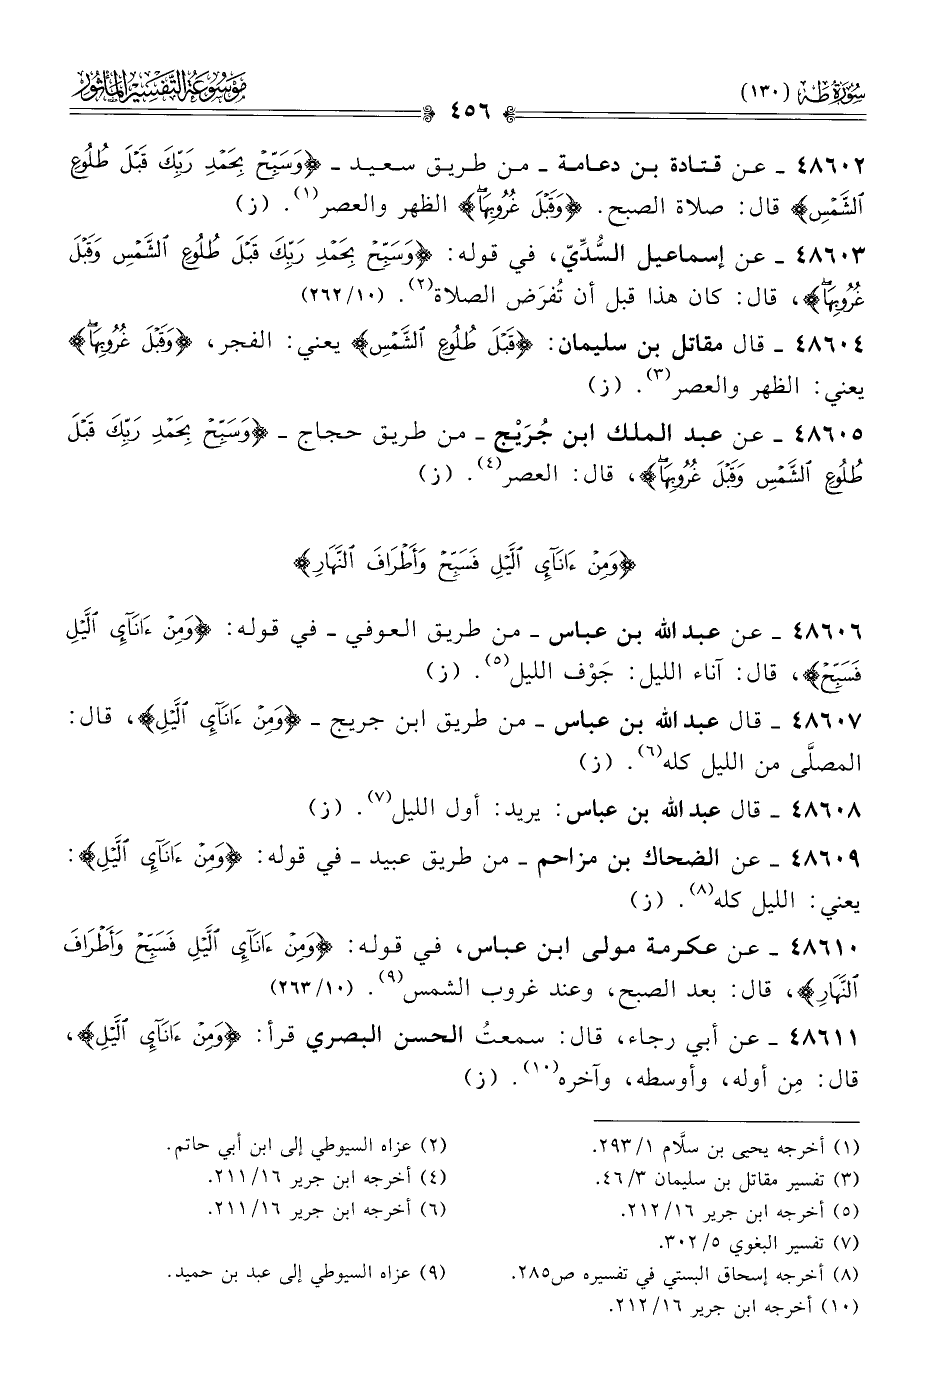 سُورَة طه (١٣٠)
موسوعة التفسير المأثور
٤٥٦
٤٨٦٠٢ ـ عن قتادة بن دعامة ـ من طريق سعيد ـ ﴿وَسَبِّحْ بِحَمْدِ رَبِّكَ قَبْلَ طُلُوعِ
ٱلشَّمْسِ﴾ قال: صلاة الصبح. ﴿وَقَبْلَ غُرُوبِهَا﴾ الظهر والعصر(١). (ز)
٤٨٦٠٣ ـ عن إسماعيل السُّدِّيّ، في قوله: ﴿وَسَبِّحْ بِحَمْدِ رَبِّكَ قَبْلَ طُلُوعِ ٱلشَّمْسِ وَقَبْلَ
غُرُوبِهَا﴾، قال: كان هذا قبل أن تُفرَض الصلاة(٢). (١٠/٢٦٢)
٤٨٦٠٤ ـ قال مقاتل بن سليمان: ﴿قَبْلَ طُلُوعِ ٱلشَّمْسِ﴾ يعني: الفجر، ﴿وَقَبْلَ غُرُوبِهَا﴾
يعني: الظهر والعصر(٣). (ز)
٤٨٦٠٥ ـ عن عبد الملك ابن جُرَيْج ـ من طريق حجاج ـ ﴿وَسَبِّحْ بِحَمْدِ رَبِّكَ قَبْلَ
طُلُوعِ ٱلشَّمْسِ وَقَبْلَ غُرُوبِهَا﴾، قال: العصر(٤). (ز)
﴿وَمِنْ ءَانَآيِٕ ٱلَّيْلِ فَسَبِّحْ وَأَطْرَافَ ٱلنَّهَارِ﴾
٤٨٦٠٦ ـ عن عبد الله بن عباس ـ من طريق العوفي ـ في قوله: ﴿وَمِنْ ءَانَآيِٕ ٱلَّيْلِ
فَسَبِّحْ﴾، قال: آناء الليل: جَوْف الليل(٥). (ز)
٤٨٦٠٧ ـ قال عبد الله بن عباس ـ من طريق ابن جريج ـ ﴿وَمِنْ ءَانَآيِٕ ٱلَّيْلِ﴾، قال:
المصلَّى من الليل كله(٦). (ز)
٤٨٦٠٨ ـ قال عبد الله بن عباس: يريد: أول الليل(٧). (ز)
٤٨٦٠٩ ـ عن الضحاك بن مزاحم ـ من طريق عبيد ـ في قوله: ﴿وَمِنْ ءَانَآيِٕ ٱلَّيْلِ﴾:
يعني: الليل كله(٨). (ز)
٤٨٦١٠ ـ عن عكرمة مولى ابن عباس، في قوله: ﴿وَمِنْ ءَانَآيِٕ ٱلَّيْلِ فَسَبِّحْ وَأَطْرَافَ
ٱلنَّهَارِ﴾، قال: بعد الصبح، وعند غروب الشمس(٩). (١٠/٢٦٣)
٤٨٦١١ ـ عن أبي رجاء، قال: سمعتُ الحسن البصري قرأ: ﴿وَمِنْ ءَانَآيِٕ ٱلَّيْلِ﴾،
قال: مِن أوله، وأوسطه، وآخره(١٠). (ز)
(١) أخرجه يحيى بن سلَّام ١/٢٩٣.
(٢) عزاه السيوطي إلى ابن أبي حاتم.
(٣) تفسير مقاتل بن سليمان ٣/٤٦.
(٤) أخرجه ابن جرير ١٦/٢١١.
(٥) أخرجه ابن جرير ١٦/٢١٢.
(٦) أخرجه ابن جرير ١٦/٢١١.
(٧) تفسير البغوي ٥/٣٠٢.
(٨) أخرجه إسحاق البستي في تفسيره ص٢٨٥.
(٩) عزاه السيوطي إلى عبد بن حميد.
(١٠) أخرجه ابن جرير ١٦/٢١٢.